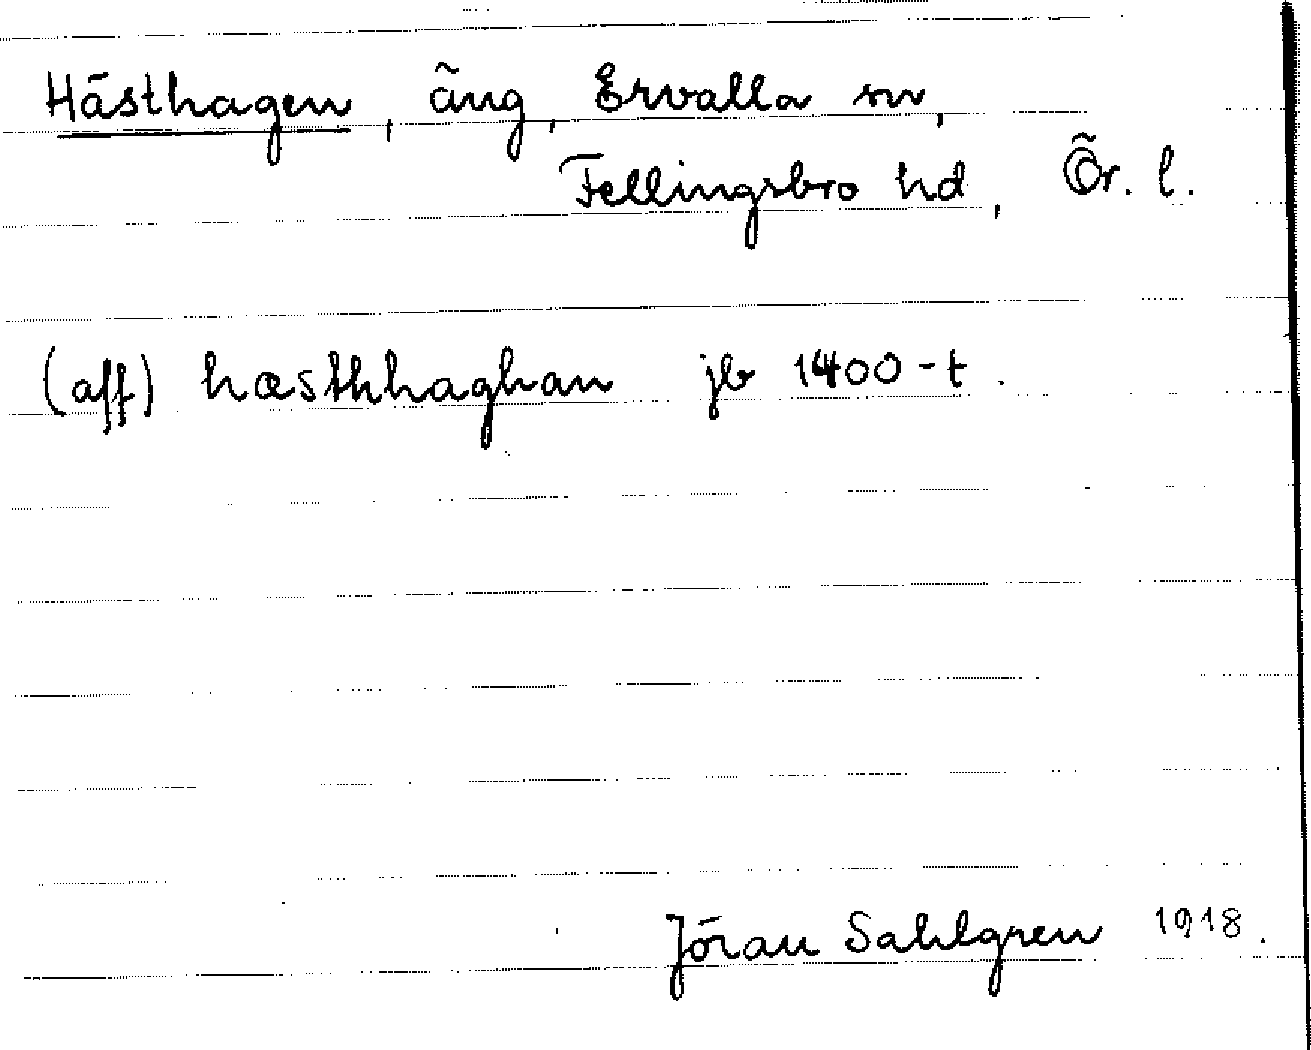 Hästhagen, äng, Ervalla sn,
Fellingsbro hd, Ör. l.
(aff) hæsthhaghan jb 1400-t.
Jöran Sahlgren 1918.